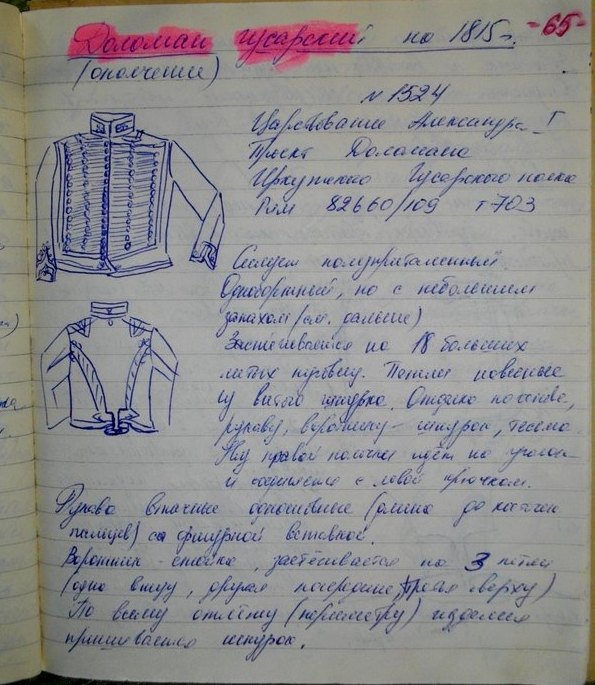 Доломан гусарский на 1815г. -65-
(ополчение)
№1524
Царствование Александра I
Проект Доломана
Иркутского Гусарского полка
Рем 82660/109 т 703
Силуэт полуприталенный
Однобортный, но с небольшим
запахом (см. дальше)
Застегивается на 18 больших
литых пуговиц. Петли навесные
из витого шнурка. Отделка по
рукаву, воротнику - шнурок, тесьма.
Низ правой полочки идёт на
и с левой крючком.
Рукава втачные одношовные (длина до костяшек
пальцев) со фигурной вставкой.
Воротник - стойка, застёгивается на 3 петли
(одна внизу, другая посередине, третья сверху)
По всему отлёту (периметру) изделия
пришивается шнурок.